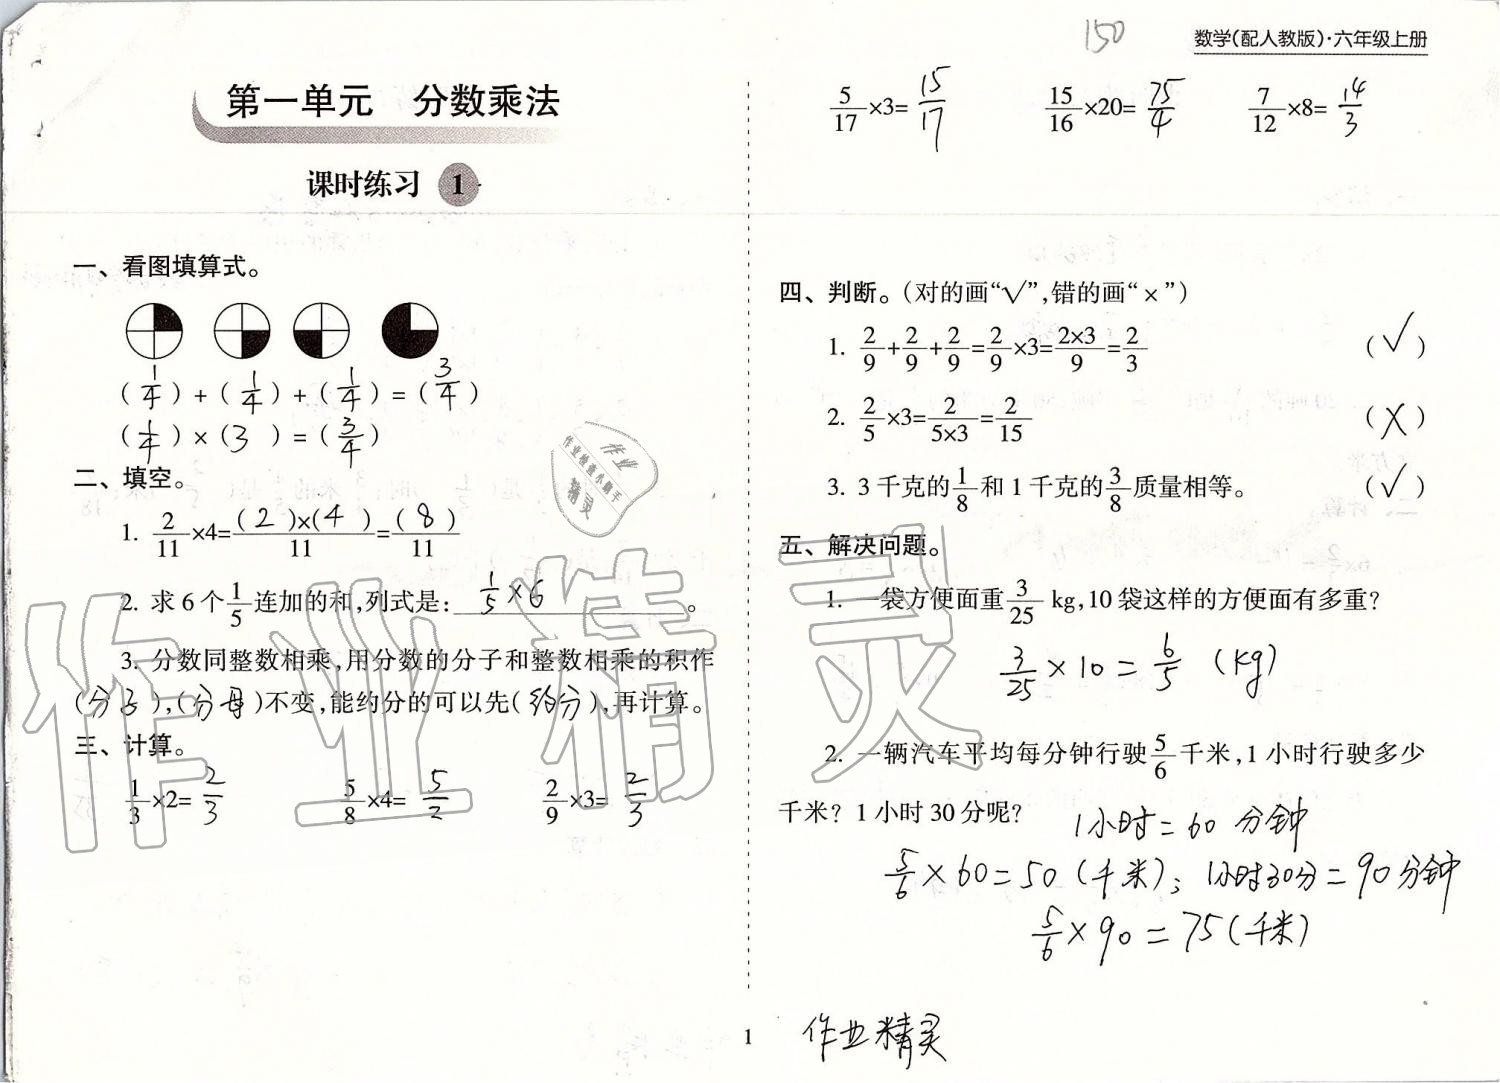 第一单元 分数乘法
课时练习 1
一、看图填算式。
(1/4)+(1/4)+(1/4)=(3/4)
(1/4)×(3)=(3/4)
二、填空。
1. 2/11×4=(2)×(4)/11=(8)/11
2. 求6个1/5连加的和,列式是:1/5×6。
3. 分数同整数相乘,用分数的分子和整数相乘的积作
(分子),(分母)不变,能约分的可以先(约分),再计算。
三、计算。
1/3×2=2/3 5/8×4=5/2 2/9×3=2/3
150
数学(配人教版)·六年级上册
5/17×3=15/17 15/16×20=75/4 7/12×8=14/3
四、判断。(对的画“√”,错的画“×”)
1. 2/9+2/9+2/9=2/9×3=2×3/9=2/3 (√)
2. 2/5×3=2/5×3=2/15 (×)
3. 3千克的1/8和1千克的3/8质量相等。 (√)
五、解决问题。
1. 一袋方便面重3/25 kg,10袋这样的方便面有多重?
3/25×10=6/5 (kg)
2. 一辆汽车平均每分钟行驶5/6千米,1小时行驶多少
千米?1小时30分呢? 1小时=60分钟
5/6×60=50(千米); 1小时30分=90分钟
5/6×90=75(千米)
1
作业精灵
作业精灵
作业
作业检查小助手
精灵